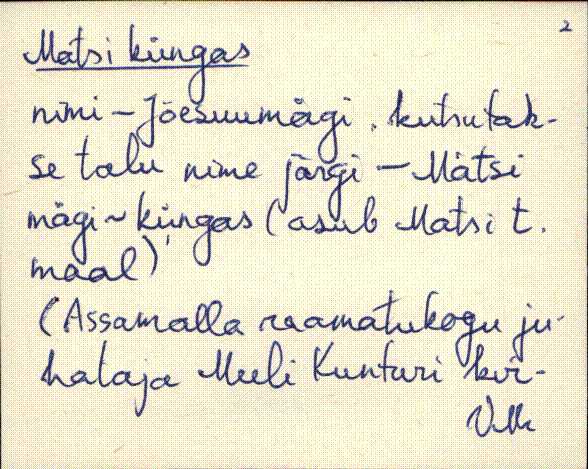 2
Matsi küngas
nimi – Jõesuumägi, kutsutak-
se talu nime järgi – Matsi
mägi ~ küngas (asub Matsi t.
maal)
(Assamalla raamatukogu ju-
hataja Meeli Kunturi kir-